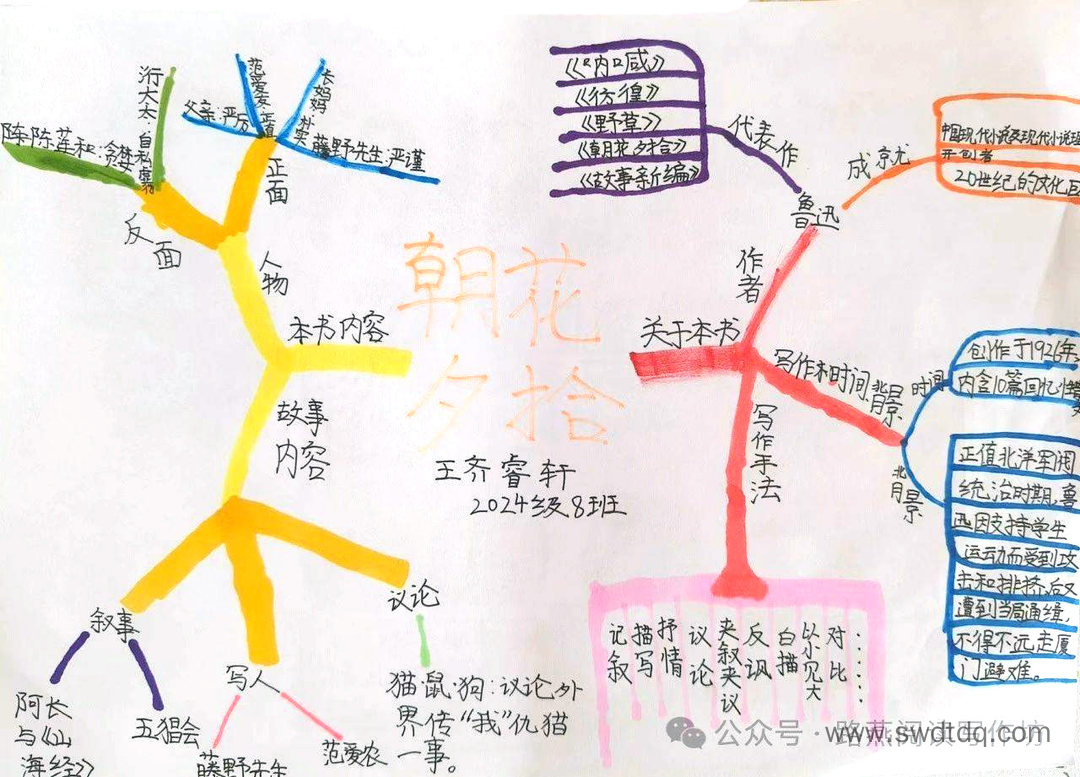 朝花
夕拾
王齐睿轩
2024级8班
本书内容
人物
正面
父亲:严厉
范爱农:正直
长妈妈:朴实
藤野先生:严谨
反面
衍太太:自私
陈莲和:贪婪
故事
内容
叙事
阿长
与《山
海经》
五猖会
写人
藤野先生
范爱农
议论
猫·鼠·狗:议论外
界传“我”仇猫
一事。
关于本书
作者
鲁迅
代表作
《呐喊》
《彷徨》
《野草》
《朝花夕拾》
《故事新编》
成就
中国现代小说及现代小说理
开创者
20世纪的文化巨
写作和时间背景
时间
创作于1926年,
内含10篇回忆性
背景
正值北洋军阀
统治时期,鲁
迅因支持学生
运动而受到攻
击和排挤,后又
遭到当局通缉,
不得不远走厦
门避难。
写作手法
记叙
描写
抒情
议论
夹叙夹议
反讽
白描
以小见大
对比
……
公众号·路燕阅读写作坊
www.swdtdq.com